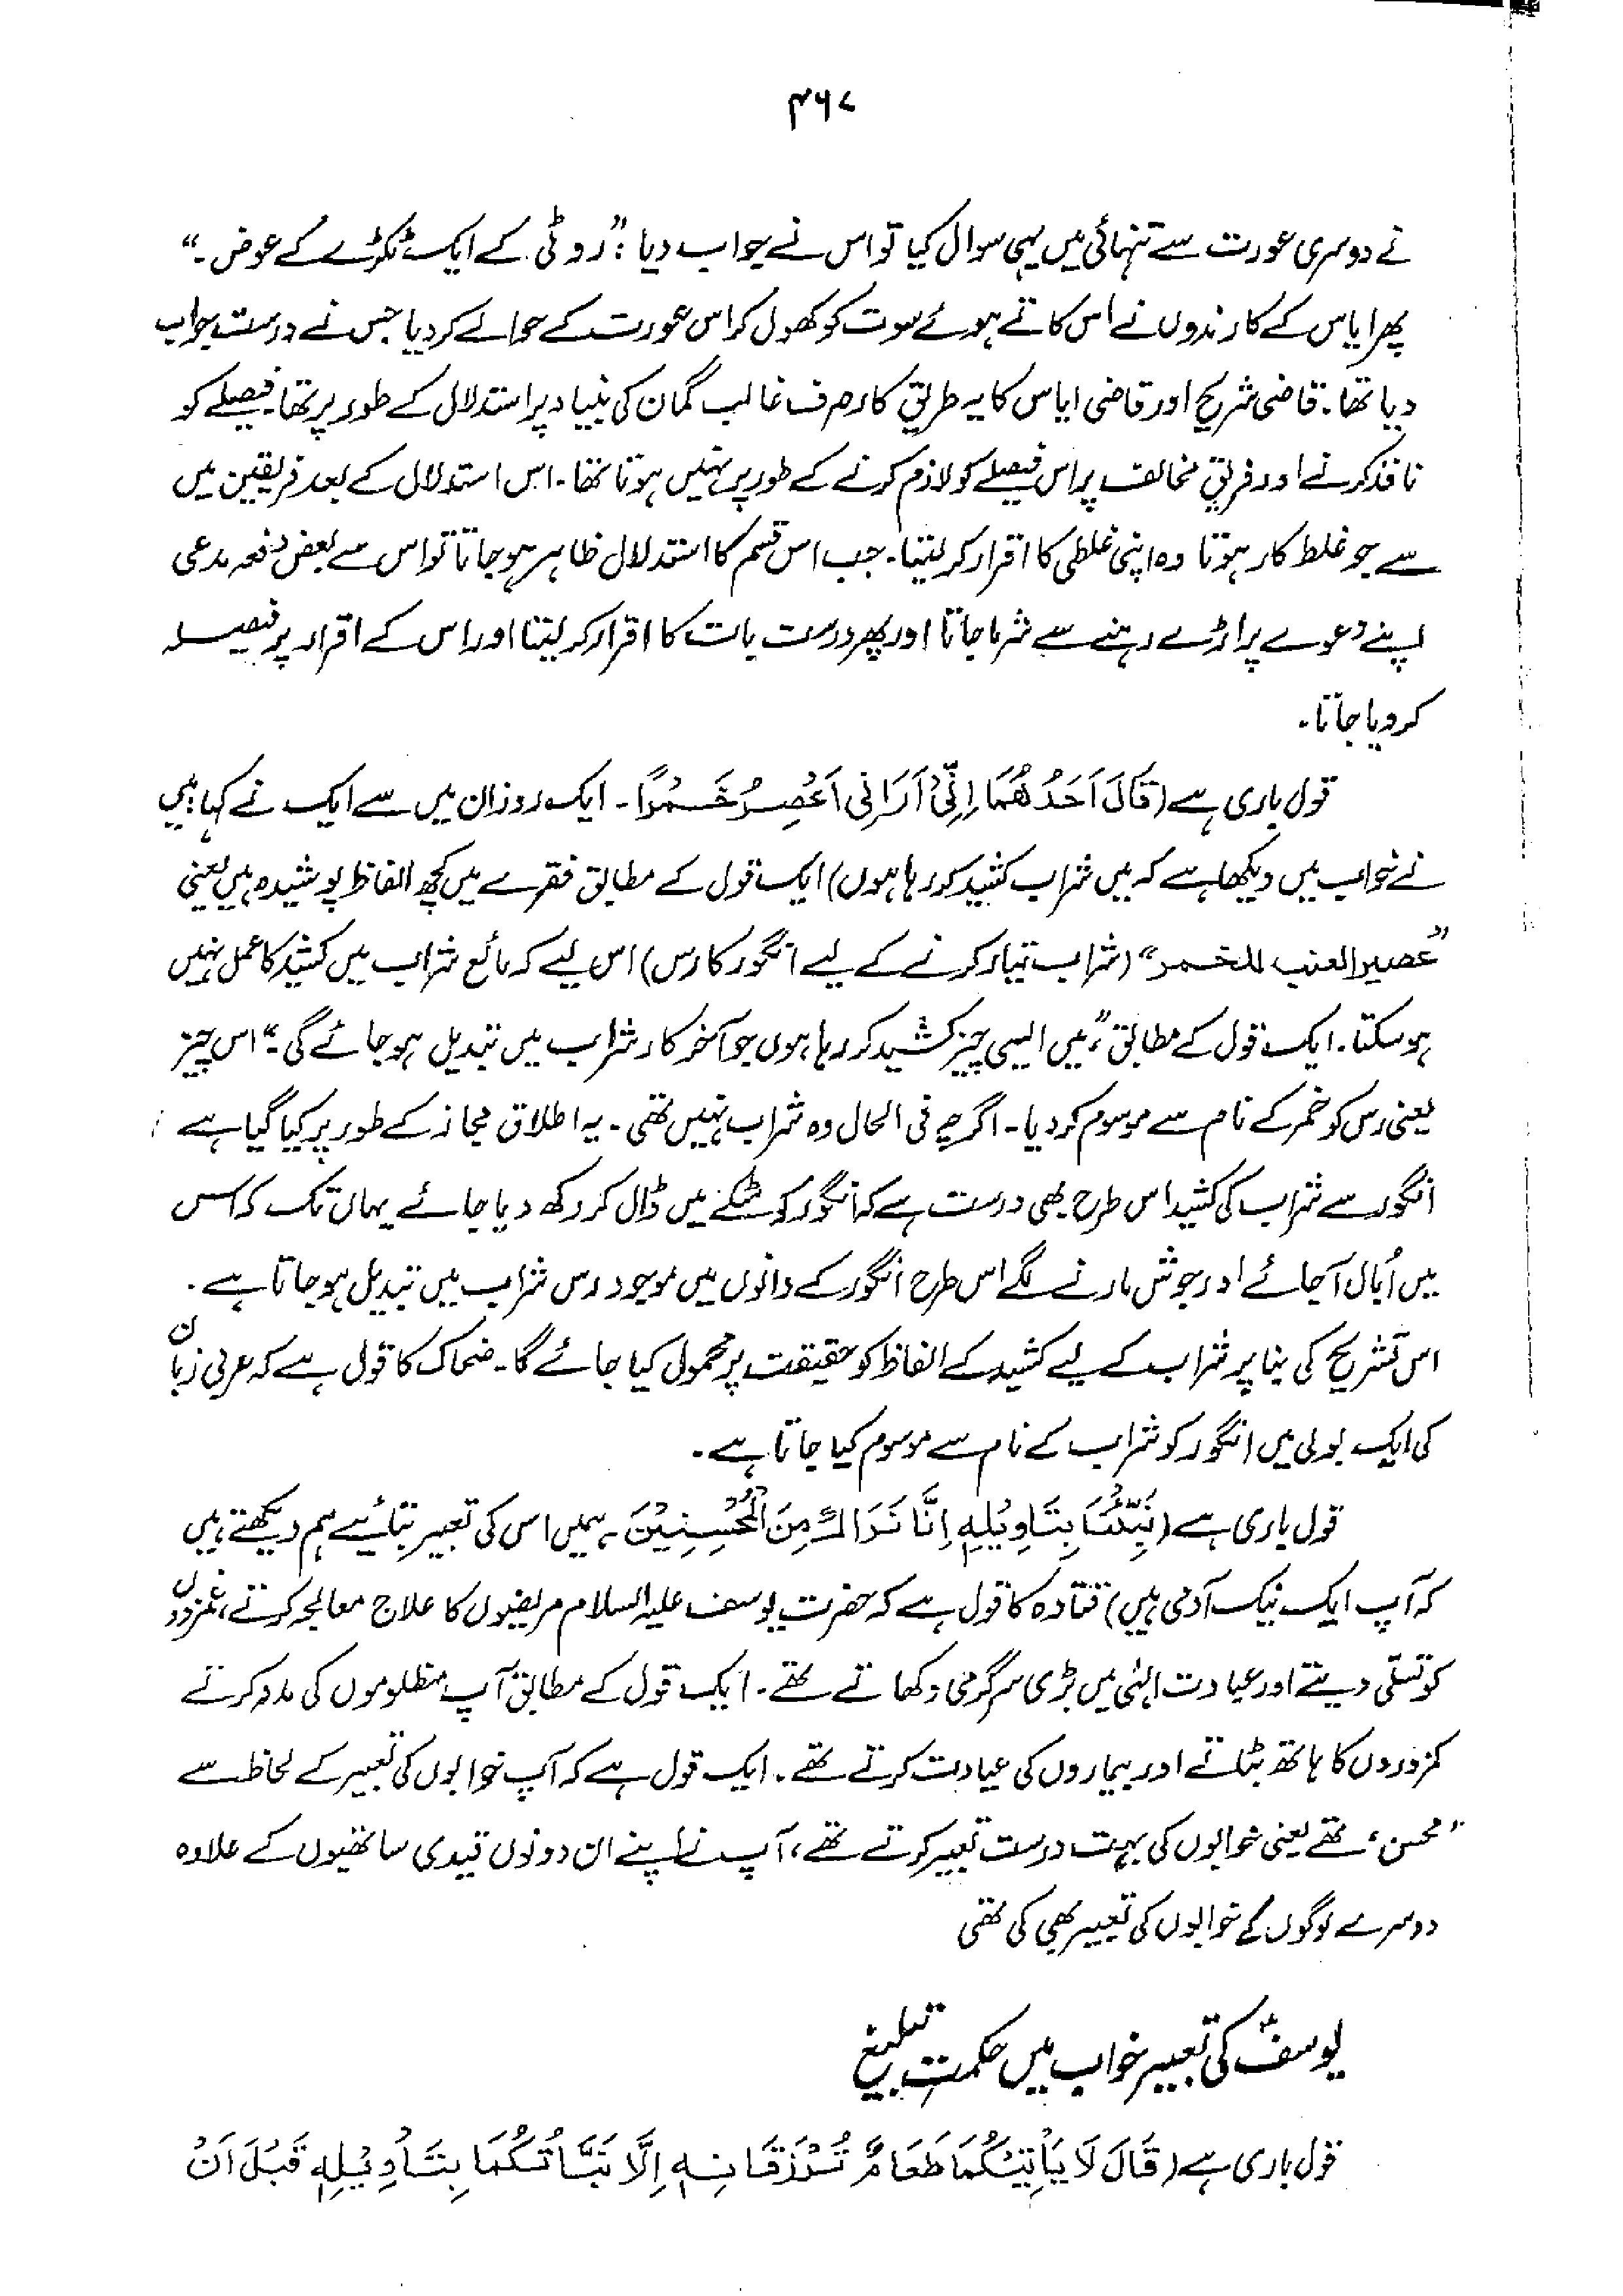 ۴۶۷
نے دوسری عورت سے تنہائی میں یہی سوال کیا تو اس نے جواب دیا : "روٹی کے ایک ٹکڑے کے عوض۔"
پھر ایاس کے کارندوں نے اس کاتے ہوئے سوت کو کھول کر اس عورت کے حوالے کردیا جس نے درست جواب
دیا تھا۔ قاضی شریح اور قاضی ایاس کا یہ طریق کار صرف غالب گمان کی بنیاد پر استدلال کے طور پر تھا۔ فیصلے کو
نافذ کرنے اور فریق مخالف پر اس فیصلے کو لازم کرنے کے طور پر نہیں ہوتا تھا۔ اس استدلال کے بعد فریقین میں
سے جو غلط کار ہوتا وہ اپنی غلطی کا اقرار کر لیتا۔ جب اس قسم کا استدلال ظاہر ہوجاتا تو اس سے بعض دفعہ مدعی
اپنے دعوے پر اڑے رہنے سے شرما جاتا اور پھر درست بات کا اقرار کر لیتا اور اس کے اقرار پر فیصلہ
کردیا جاتا۔
قول باری ہے (قَالَ اَحَدُهُمَا اِنِّیْ اَرَانِی اَعْصِرُ خَمْرًا۔ ایک روز ان میں سے ایک نے کہا: میں
نے خواب میں دیکھا ہے کہ میں شراب کشید کر رہا ہوں) ایک قول کے مطابق فقرے میں کچھ الفاظ پوشیدہ ہیں یعنی
"عصیر العنب للخمر" (شراب تیار کرنے کے لیے انگور کا رس) اس لیے کہ مائع شراب میں کشید کا عمل نہیں
ہو سکتا۔ ایک قول کے مطابق "میں ایسی چیز کشید کر رہا ہوں جو آخر کار شراب میں تبدیل ہو جائے گی۔" اس چیز
یعنی رس کو خمر کے نام سے موسوم کر دیا۔ اگرچہ فی الحال وہ شراب نہیں تھی۔ یہ اطلاق مجاز کے طور پر کیا گیا ہے
انگور سے شراب کی کشید اس طرح بھی درست ہے کہ انگور کو مٹکے میں ڈال کر رکھ دیا جائے یہاں تک کہ اس
میں اُبال آجائے اور جوش مارنے لگے اس طرح انگور کے دانوں میں موجود رس شراب میں تبدیل ہو جاتا ہے۔
اس تشریح کی بنا پر شراب کے لیے کشید کے الفاظ کو حقیقت پر محمول کیا جائے گا۔ ضحاک کا قول ہے کہ عربی زبان
کی ایک بولی میں انگور کو شراب کے نام سے موسوم کیا جاتا ہے۔
قول باری ہے (نَبِّئْنَا بِتَاوِیْلِهٖ اِنَّا نَرَاكَ مِنَ الْمُحْسِنِیْنَ، ہمیں اس کی تعبیر بتائیے ہم دیکھتے ہیں
کہ آپ ایک نیک آدمی ہیں) قتادہ کا قول ہے کہ حضرت یوسف علیہ السلام مریضوں کا علاج معالجہ کرتے، غمزدوں
کو تسلّی دیتے اور عبادت الٰہی میں بڑی سرگرمی دکھاتے تھے۔ ایک قول کے مطابق آپ مظلوموں کی مدد کرتے
کمزوروں کا ہاتھ بٹاتے اور بیماروں کی عیادت کرتے تھے۔ ایک قول ہے کہ آپ خوابوں کی تعبیر کے لحاظ سے
"محسن" تھے یعنی خوابوں کی بہت درست تعبیر کرتے تھے، آپ نے اپنے ان دونوں قیدی ساتھیوں کے علاوہ
دوسرے لوگوں کے خوابوں کی تعبیر بھی کی تھی
یوسفؑ کی تعبیر خواب میں حکمت تبلیغ
قول باری ہے (قَالَ لَا یَأْتِیْکُمَا طَعَامٌ تُرْزَقَانِهٖ اِلَّا نَبَّأْتُکُمَا بِتَأْوِیْلِهٖ قَبْلَ اَنْ